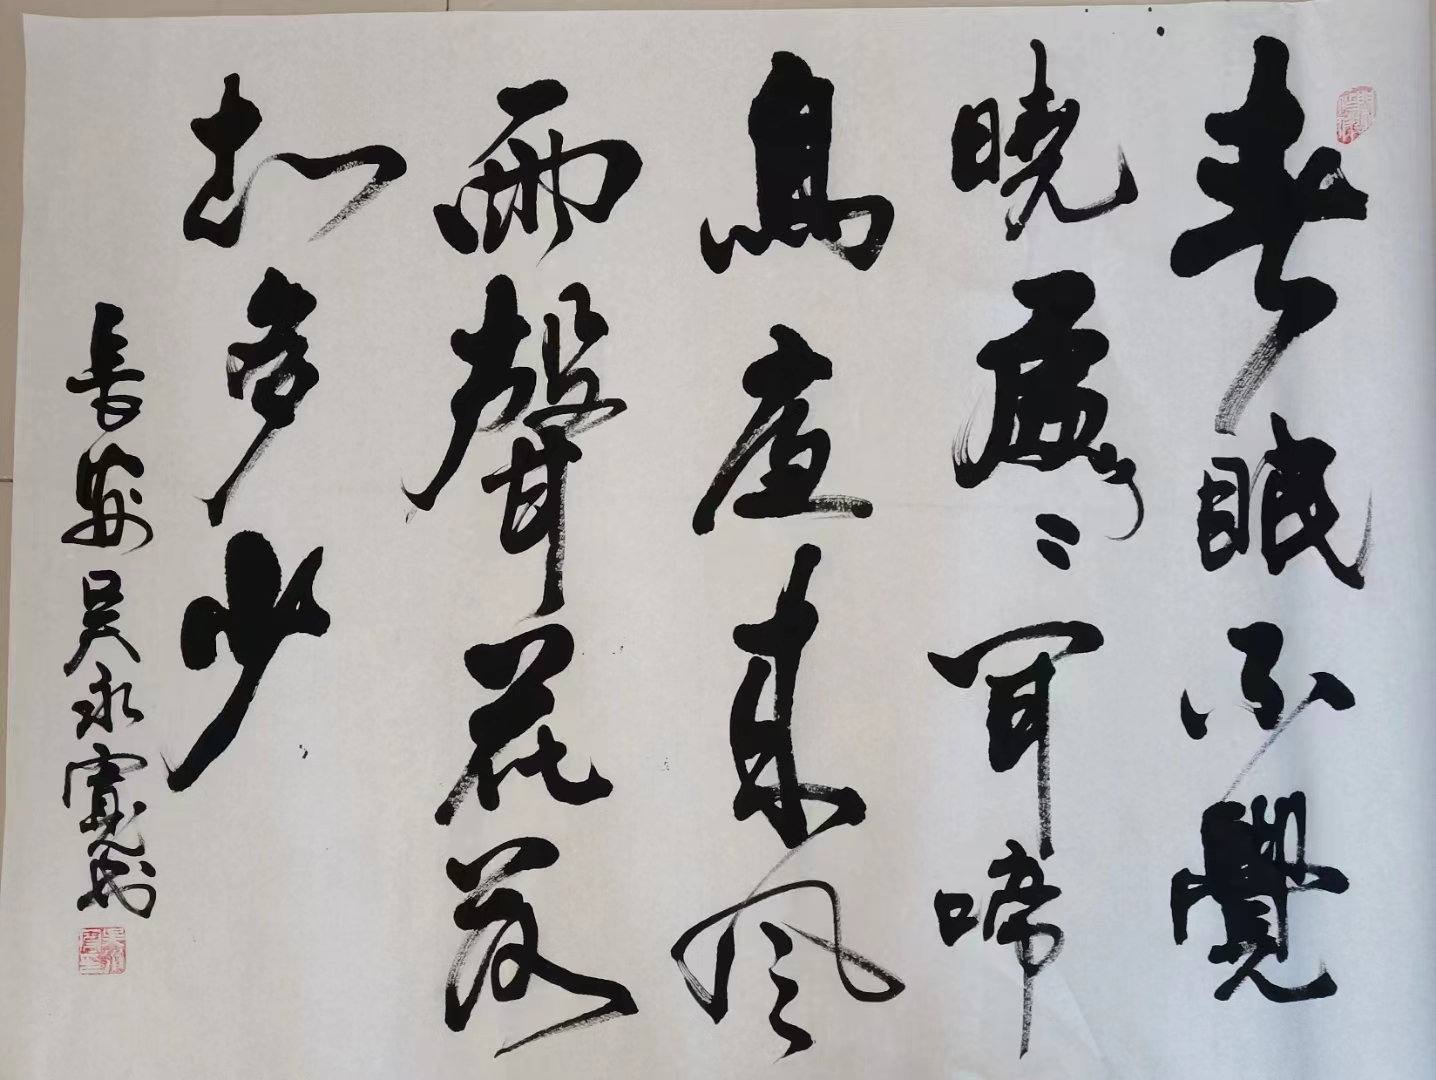 春眠不覺
曉處〻聞啼
鳥夜來風
雨聲花落
知多少
長安吳永寬書